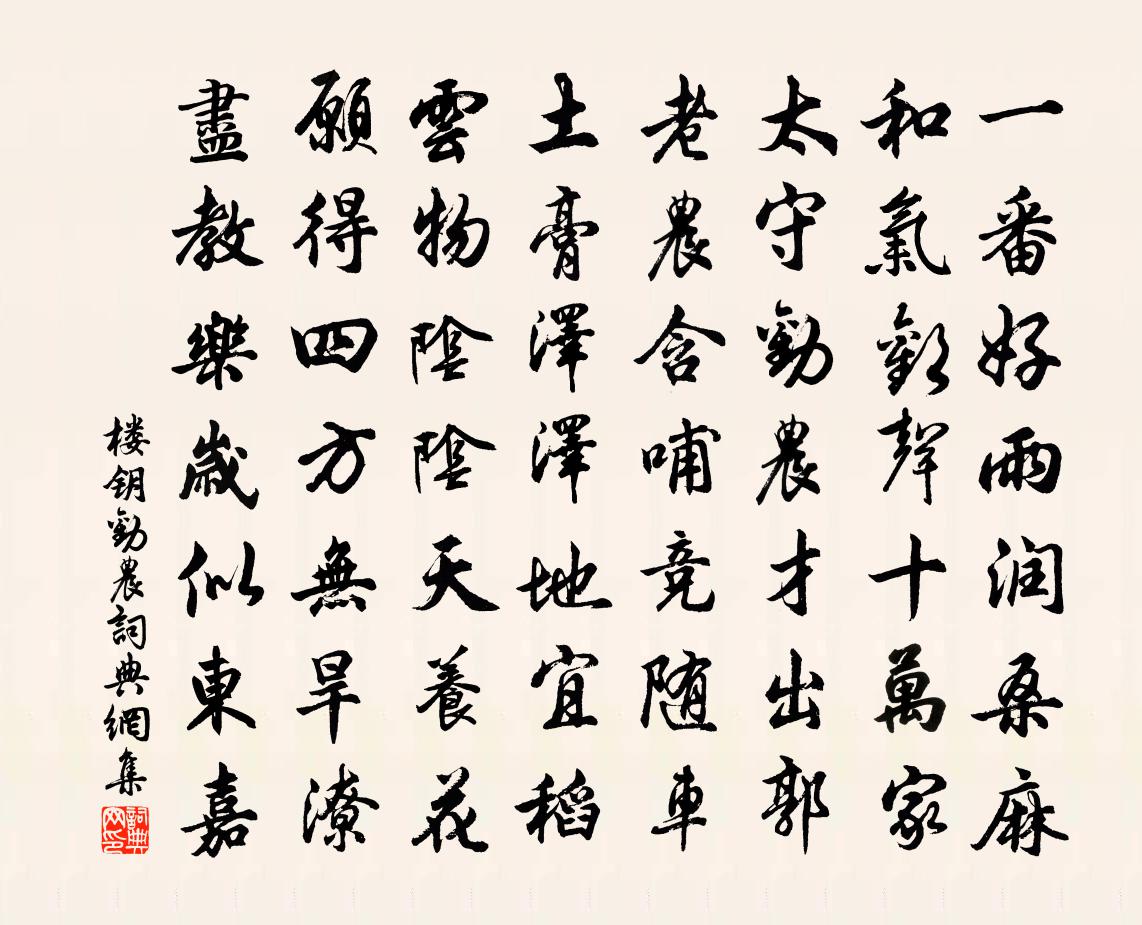 一番好雨润桑麻
和氣歡聲十萬家
太守勸農才出郭
老農含哺竞随車
土膏澤澤地宜稻
雲物陰陰天養花
願得四方無旱潦
盡教樂歲似東嘉
楼钥勸農詞典網集
詞典网印